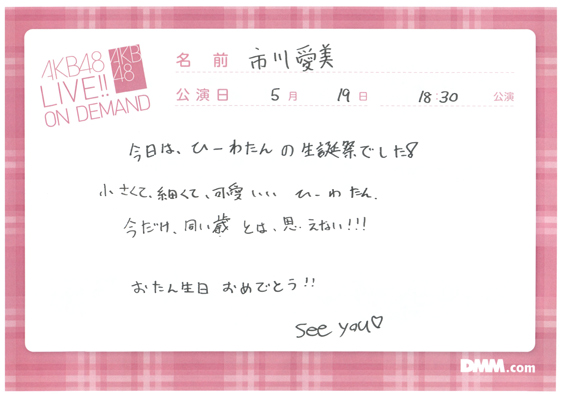 AKB48
LIVE!!
ON DEMAND
AKB
48
名前 市川愛美
公演日 5月 19日 18:30 公演
今日は、ひーわたんの生誕祭でした!
小さくて、細くて、可愛いい ひーわたん。
今だけ、同い歳とは、思えない!!!
おたん生日 おめでとう!!
see you♡
DMM.com